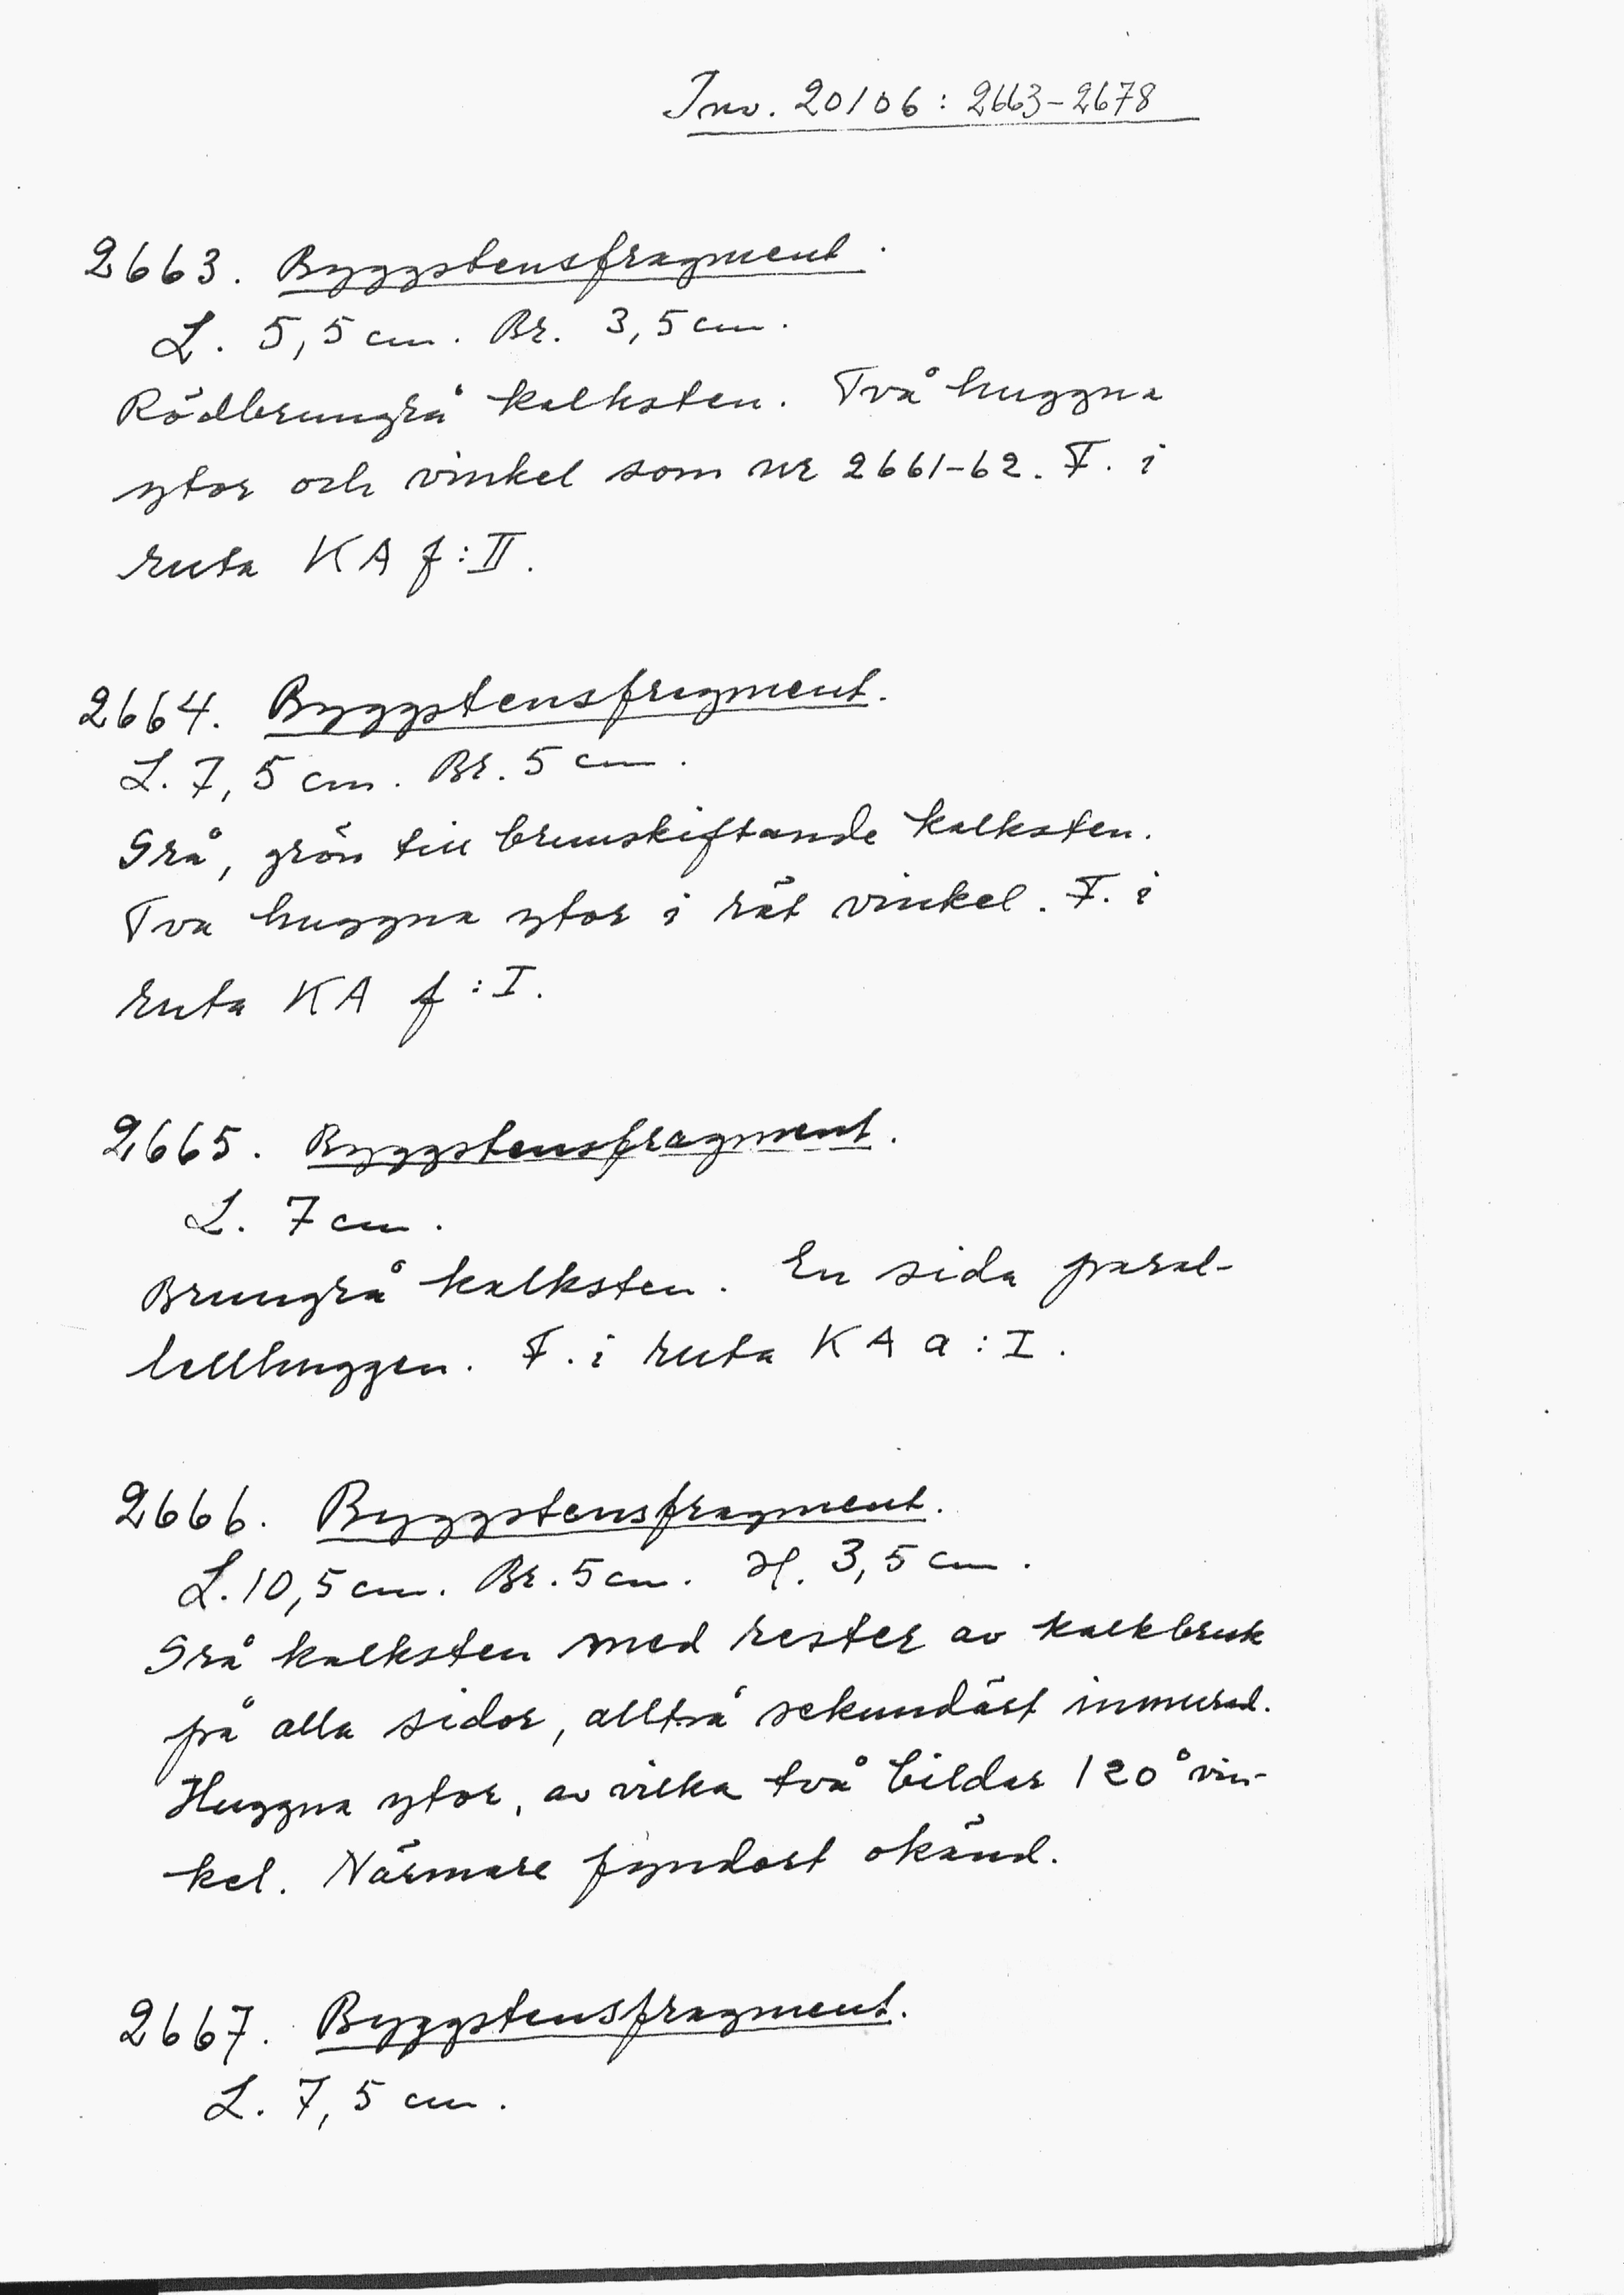 Inv. 20106: 2663-2678
2663. Byggstensfragment.
L. 5,5 cm. Br. 3,5 cm.
Rödbrungrå kalksten. Två huggna
ytor och vinkel som nr 2661-62. F. i
ruta KA f:II.
2664. Byggstensfragment.
L. 7,5 cm. Br. 5 cm.
Grå, grön till brunskiftande kalksten.
Två huggna ytor i rät vinkel. F. i
ruta KA f:I.
2665. Byggstensfragment.
L. 7 cm.
Brungrå kalksten. En sida paral-
lellhuggen. F. i ruta KA a:I.
2666. Byggstensfragment.
L. 10,5 cm. Br. 5 cm. H. 3,5 cm.
Grå kalksten med rester av kalkbruk
på alla sidor, alltså sekundärt inmurad.
Huggna ytor, av vilka två bildar 120° vin-
kel. Närmare fyndort okänd.
2667. Byggstensfragment.
L. 7,5 cm.